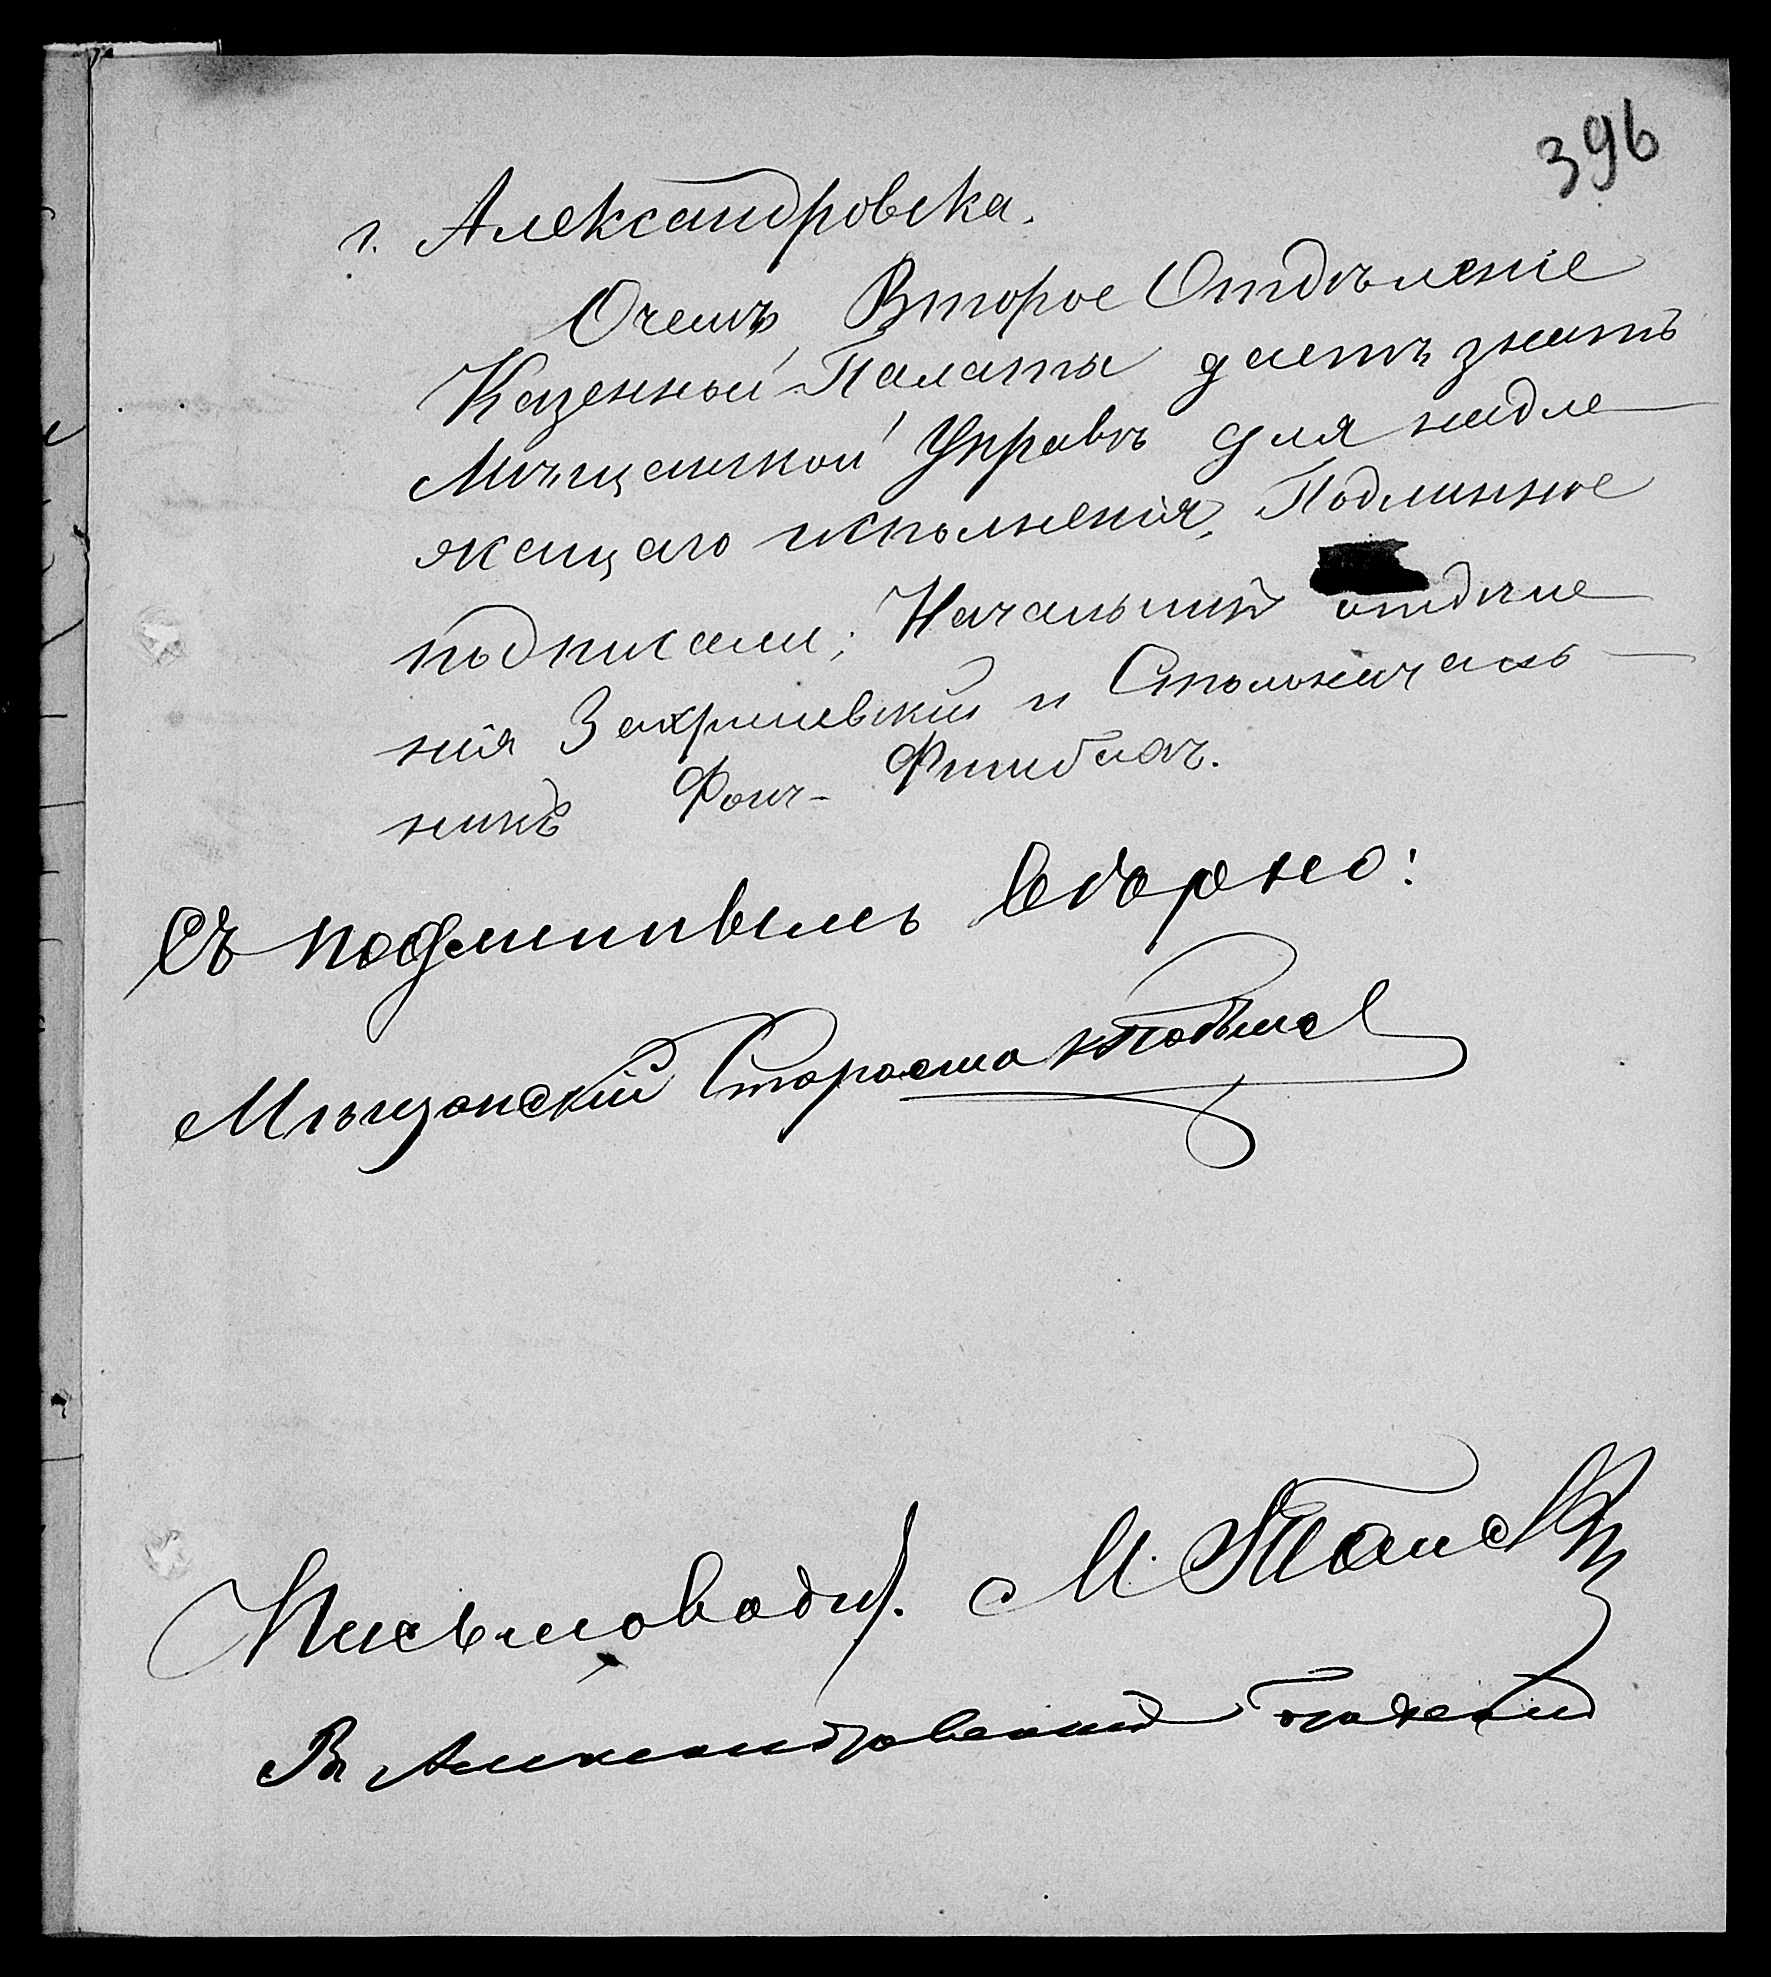 396
г. Александровска.
Очемъ, Второе Отдѣленіе
Казенной Палаты даетъ знать
Мѣщанской Управѣ для надле
жащаго исполненія, Подлинное
подписали; Начальникъ отдѣле
нія и Столоначаль
никъ Фонъ-
Съ подлиннымъ вѣрно:
Мѣщанскій Староста
Письмовод. М.
В Александровскій